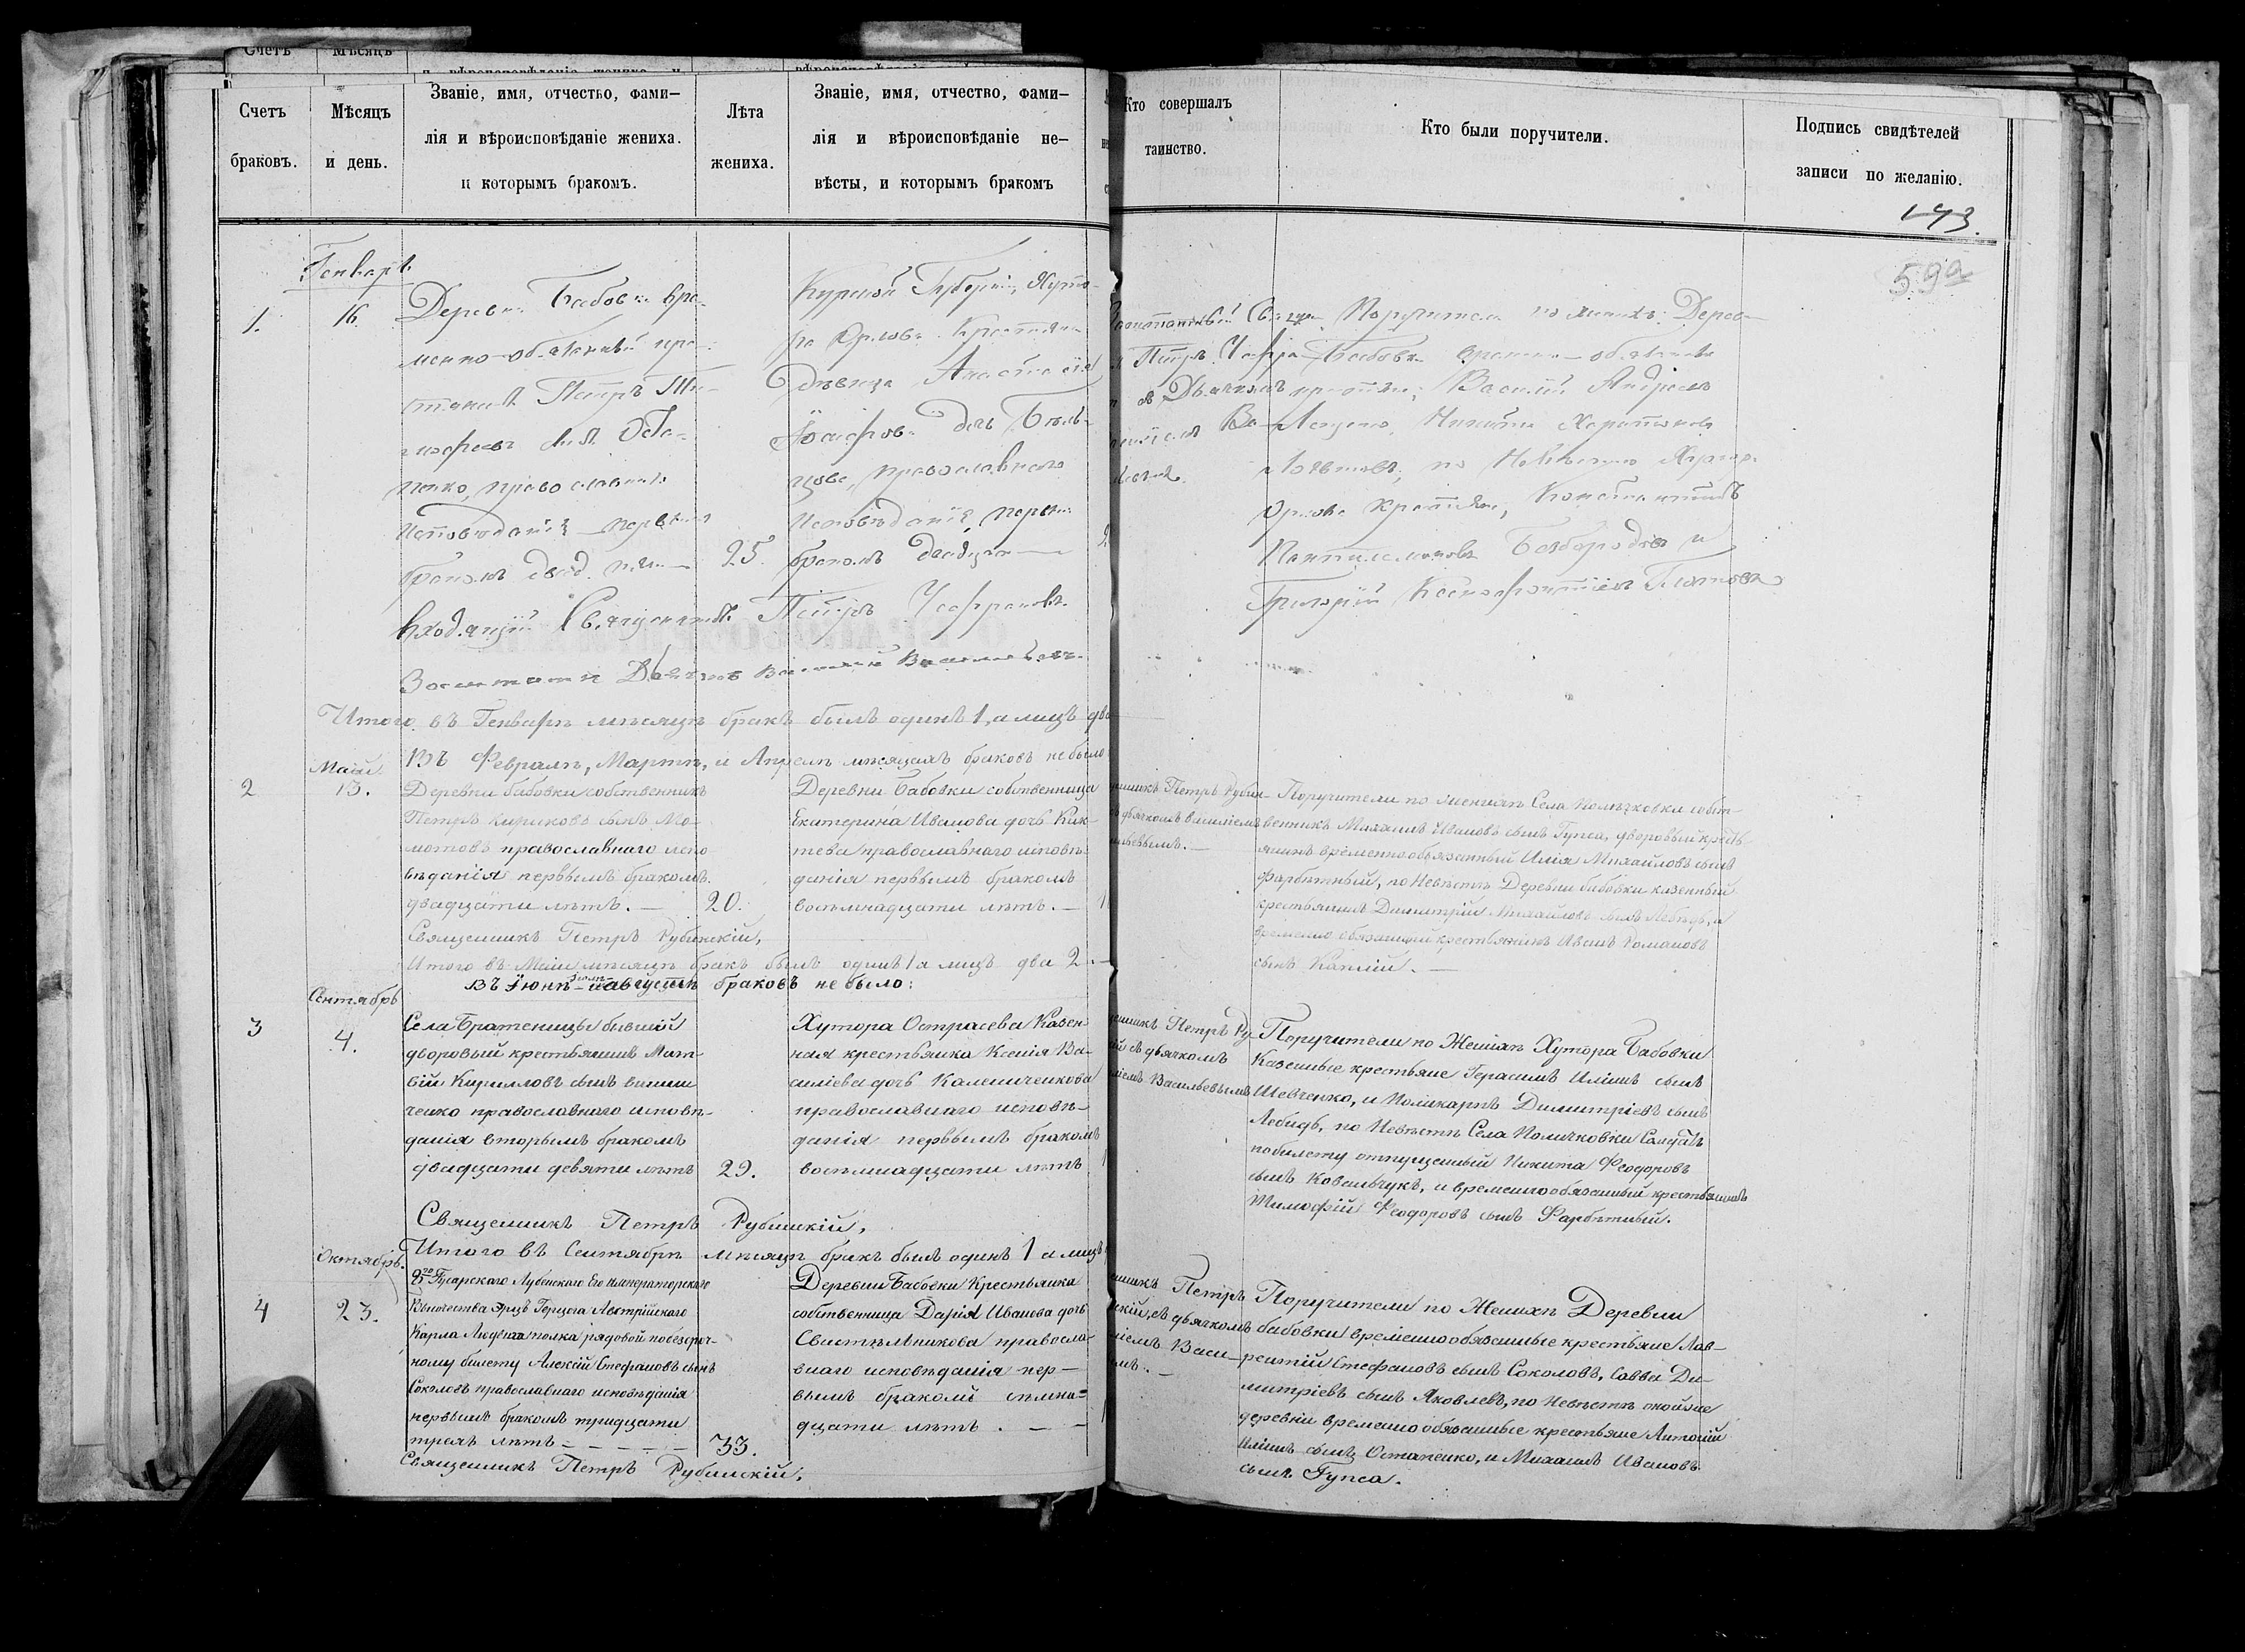 Счетъ
Мѣсяцъ
Счетъ
браковъ.
Мѣсяцъ
и день.
Званіе, имя, отчество, фами-
лія и вѣроисповѣданіе жениха.
и которымъ бракомъ.
Лѣта
жениха.
Званіе, имя, отчество, фами-
лія и вѣроисповѣданіе не-
вѣсты, и которымъ бракомъ
Кто совершалъ
таинство.
Кто были поручители.
Подпись свидѣтелей
записи по желанію.
143.
59а
Генварь
1.
16
Деревни Бабовки вре-
менно-обязанный кре-
Петръ
православнаго
исповѣданія первымъ
бракомъ
25.
Курской Губерніи, Хуто-
ра Орлова Крестьянка
Дѣвица Анастасія
дочь
православнаго
исповѣданія, первымъ
бракомъ двадцати
Входящій Священникъ Петръ
Дьячокъ Василій Васильевъ
Поручители по женихѣ: Дерев-
Бабовки временно-обязанные
Василій Андреевъ
по Невѣстѣ Хутора
Орлова крестьяне, Константинъ
Пантелеимоновъ Безбородко и
Григорій
Итого въ Генварѣ мѣсяцѣ бракъ былъ одинъ 1, а лицъ два
Въ Февралѣ, Мартѣ, и Апрелѣ мѣсяцахъ браковъ небыло
Май
2
13.
Деревни Бабовки собственникъ
Петръ Кириковъ сынъ Мо-
мотовъ православнаго испо
вѣданія первымъ бракомъ.
двадцати лѣтъ. —
20.
Деревни Бабовки собственница
Екатерина Иванова дочь Кик-
тева православнаго исповѣ-
данія первымъ бракомъ
восѣмнадцати лѣтъ. —
Священникъ Петръ Рубинскій,
Петръ Рубин-
дьячкомъ Василіемъ
Поручители по женихѣ Села Поличковки собст-
венникъ Михаилъ Ивановъ сынъ Гупса, дворовый кресть-
янинъ временнообязанный Илія Михайловъ сынъ
Фарбѣтный, по Невѣстѣ Деревни Бабовки казенный
крестьянинъ Димитрій Михайловъ сынъ Лебидь, и
временно обязанный крестьянинъ Иванъ Романовъ
сынъ
Итого въ Маи мѣсяцѣ бракъ былъ одинъ 1 а лицъ два 2. —
Въ Іюнѣ Іюлѣ и Августѣ браковъ небыло:
Сентябрь
3
4.
Села Братеницы бывшій
дворовый крестьянинъ Мат-
вій Кирилловъ сынъ
ченко православнаго исповѣ-
данія вторымъ бракомъ
двадцати девяти лѣтъ
29.
Хутора Острасева Казен-
ная крестьянка Ксенія Ва-
силіева дочь Калениченкова
православнаго исповѣ-
данія первымъ бракомъ
восѣмнадцати лѣтъ
Петръ Ру-
съ дьячкомъ
Васильевымъ
Поручители по Женихѣ Хутора Бабовки
Казенные крестьяне Герасимъ Иліинъ сынъ
Шевченко, и Поликарпъ Димитріевъ сынъ
Лебидь, по Невѣстѣ Села Поличковки Салдатъ
побилету отпущенный Никита Феодоровъ
сынъ Ковальчукъ, и временнообязанный крестьянинъ
Тимофій Феодоровъ сынъ Фарбѣтный.
Священникъ Петръ Рубинскій,
Итого въ Сентябрѣ мѣсяцѣ бракъ былъ одинъ 1 а лицъ
Октябрь.
4
23.
8го Гусарскаго Лубенскаго Его Императорскаго
Высочества Эрцъ Герцога Австрійскаго
Карла Людвига полка рядовой побезсроч-
ному билету Алексій Стефановъ сынъ
Соколовъ православнаго исповѣданія
первымъ бракомъ тридцати
трехъ лѣтъ
33.
Деревни Бабовки Крестьянка
собственница Дарія Иванова дочь
Свистѣльникова правосла-
внаго исповѣданія пер-
вымъ бракомъ сѣмна-
дцати лѣтъ. — —
Петръ
съ дьячкомъ
Васи-
Поручители по Женихѣ Деревни
Бабовки временнообязанные крестьяне Лав-
рентій Стефановъ сынъ Соколовъ, Савва Ди-
митріевъ сынъ Яковлевъ, по Невѣстѣ тойже
деревни временнообязанные крестьяне Антоній
Иліинъ сынъ Остапенко, и Михаилъ Ивановъ
сынъ Гупса.
Священникъ Петръ Рубинскій,